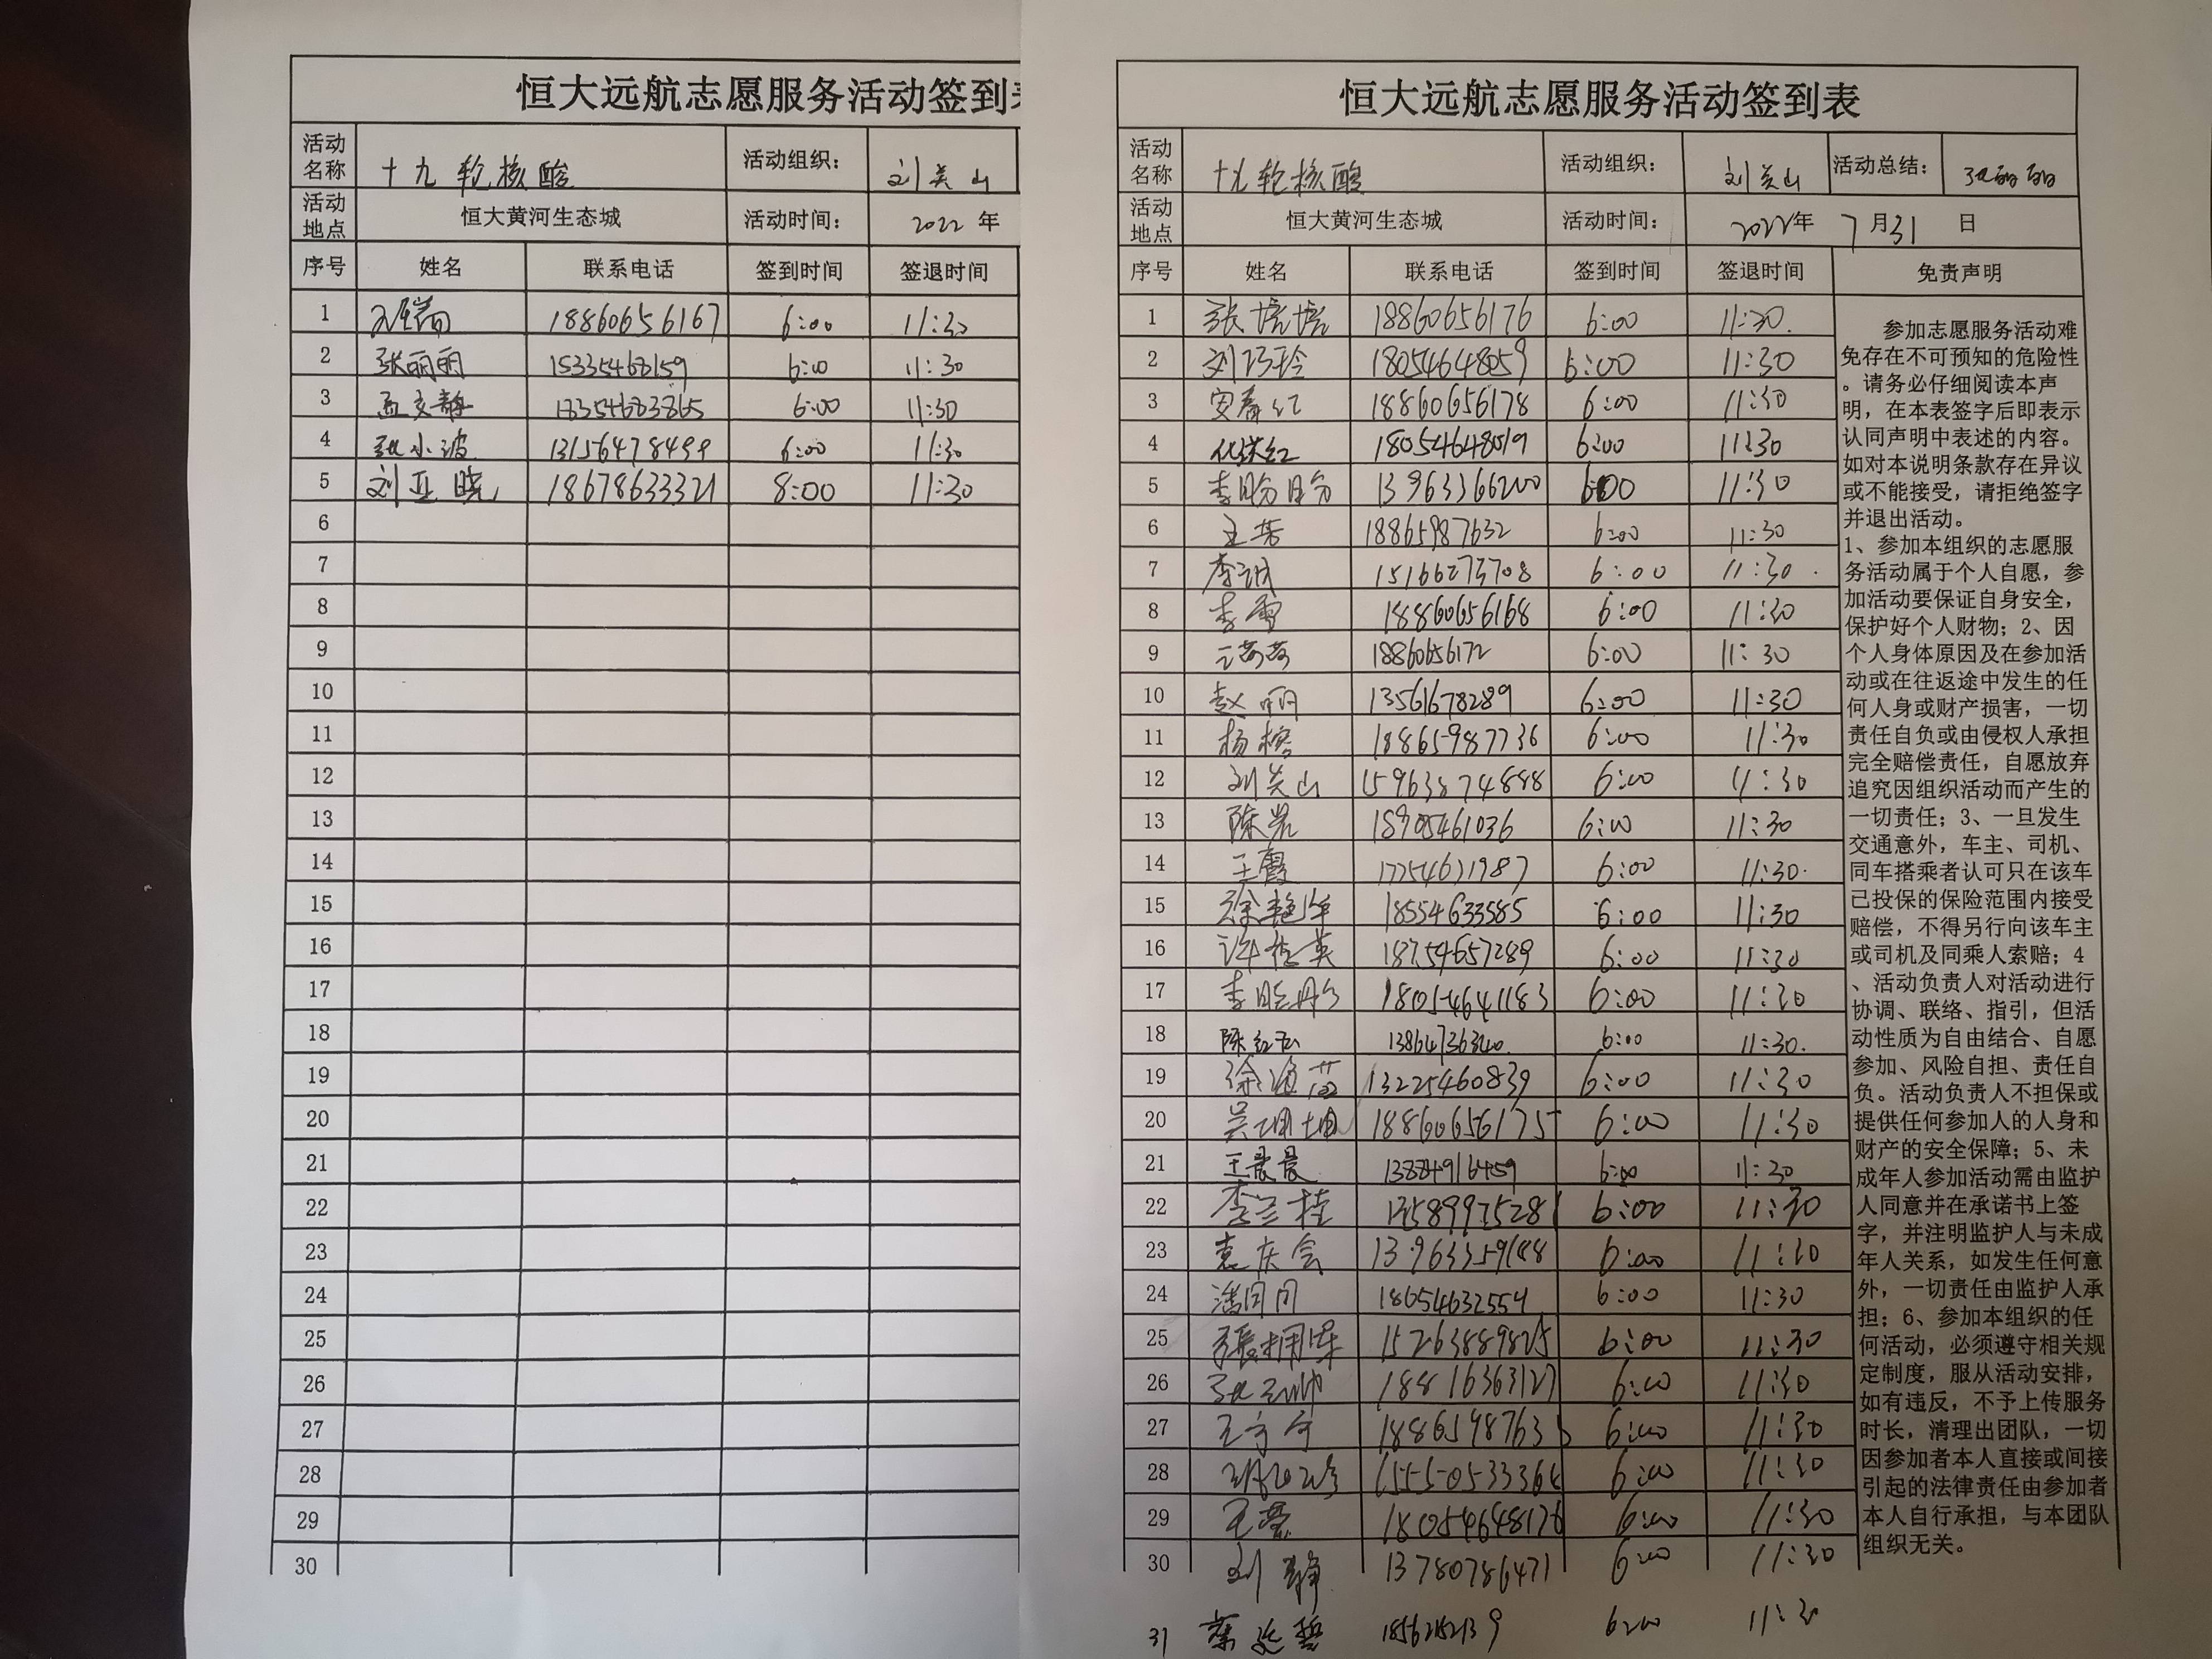 恒大远航志愿服务活动签到
活动名称 十九轮核酸 活动组织: 刘关山
活动地点 恒大黄河生态城 活动时间: 2022年
序号 姓名 联系电话 签到时间 签退时间
1 18860656167 6:00 11:30
2 张丽雨 15335462159 6:00 11:30
3 孟文静 18354683865 6:00 11:30
4 张小波 13156478499 6:00 11:30
5 刘亚晓 18678633321 8:00 11:30
6
7
8
9
10
11
12
13
14
15
16
17
18
19
20
21
22
23
24
25
26
27
28
29
30
恒大远航志愿服务活动签到表
活动名称 十九轮核酸 活动组织: 刘关山 活动总结: 张丽丽
活动地点 恒大黄河生态城 活动时间: 2022年 7月31日
序号 姓名 联系电话 签到时间 签退时间 免责声明
1 张培培 18860656176 6:00 11:30.
2 刘巧玲 18054648059 6:00 11:30
3 安春红 18860656178 6:00 11:30
4 18054648019 6:00 11:30
5 李盼盼 13963366200 6:00 11:30
6 王芳 18865987632 6:00 11:30
7 李诚 15166273708 6:00 11:30
8 李雪 18860656168 6:00 11:30
9 王茹茹 18860656172 6:00 11:30
10 赵丽 13561678289 6:00 11:30
11 杨榕 18865987736 6:00 11:30
12 刘关山 15963874888 6:00 11:30
13 陈岩 18905461036 6:00 11:30
14 王霞 17754671987 6:00 11:30
15 徐艳华 18554633585 6:00 11:30
16 许桂英 18754657289 6:00 11:30
17 李晓丹 18054641183 6:00 11:30
18 陈红云 13864736340 6:00 11:30
19 徐海燕 13225460839 6:00 11:30
20 吴坤坤 18860656175 6:00 11:30
21 王晨晨 13884916459 6:00 11:30
22 李兰桂 13589975281 6:00 11:30
23 袁庆会 13963359188 6:00 11:30
24 潘闫闫 18654632554 6:00 11:30
25 張拥军 15263889825 6:00 11:30
26 18816363127 6:00 11:30
27 王宁宁 18865987635 6:00 11:30
28 15550533364 6:00 11:30
29 王蕊 18054648176 6:00 11:30
30 刘静 13780786471 6:00 11:30
31 蔡廷哲 18562152139 6:00 11:30
参加志愿服务活动难
免存在不可预知的危险性
。请务必仔细阅读本声
明,在本表签字后即表示
认同声明中表述的内容。
如对本说明条款存在异议
或不能接受,请拒绝签字
并退出活动。
1、参加本组织的志愿服
务活动属于个人自愿,参
加活动要保证自身安全,
保护好个人财物;2、因
个人身体原因及在参加活
动或在往返途中发生的任
何人身或财产损害,一切
责任自负或由侵权人承担
完全赔偿责任,自愿放弃
追究因组织活动而产生的
一切责任;3、一旦发生
交通意外,车主、司机、
同车搭乘者认可只在该车
已投保的保险范围内接受
赔偿,不得另行向该车主
或司机及同乘人索赔;4
、活动负责人对活动进行
协调、联络、指引,但活
动性质为自由结合、自愿
参加、风险自担、责任自
负。活动负责人不担保或
提供任何参加人的人身和
财产的安全保障;5、未
成年人参加活动需由监护
人同意并在承诺书上签
字,并注明监护人与未成
年人关系,如发生任何意
外,一切责任由监护人承
担;6、参加本组织的任
何活动,必须遵守相关规
定制度,服从活动安排,
如有违反,不予上传服务
时长,清理出团队,一切
因参加者本人直接或间接
引起的法律责任由参加者
本人自行承担,与本团队
组织无关。